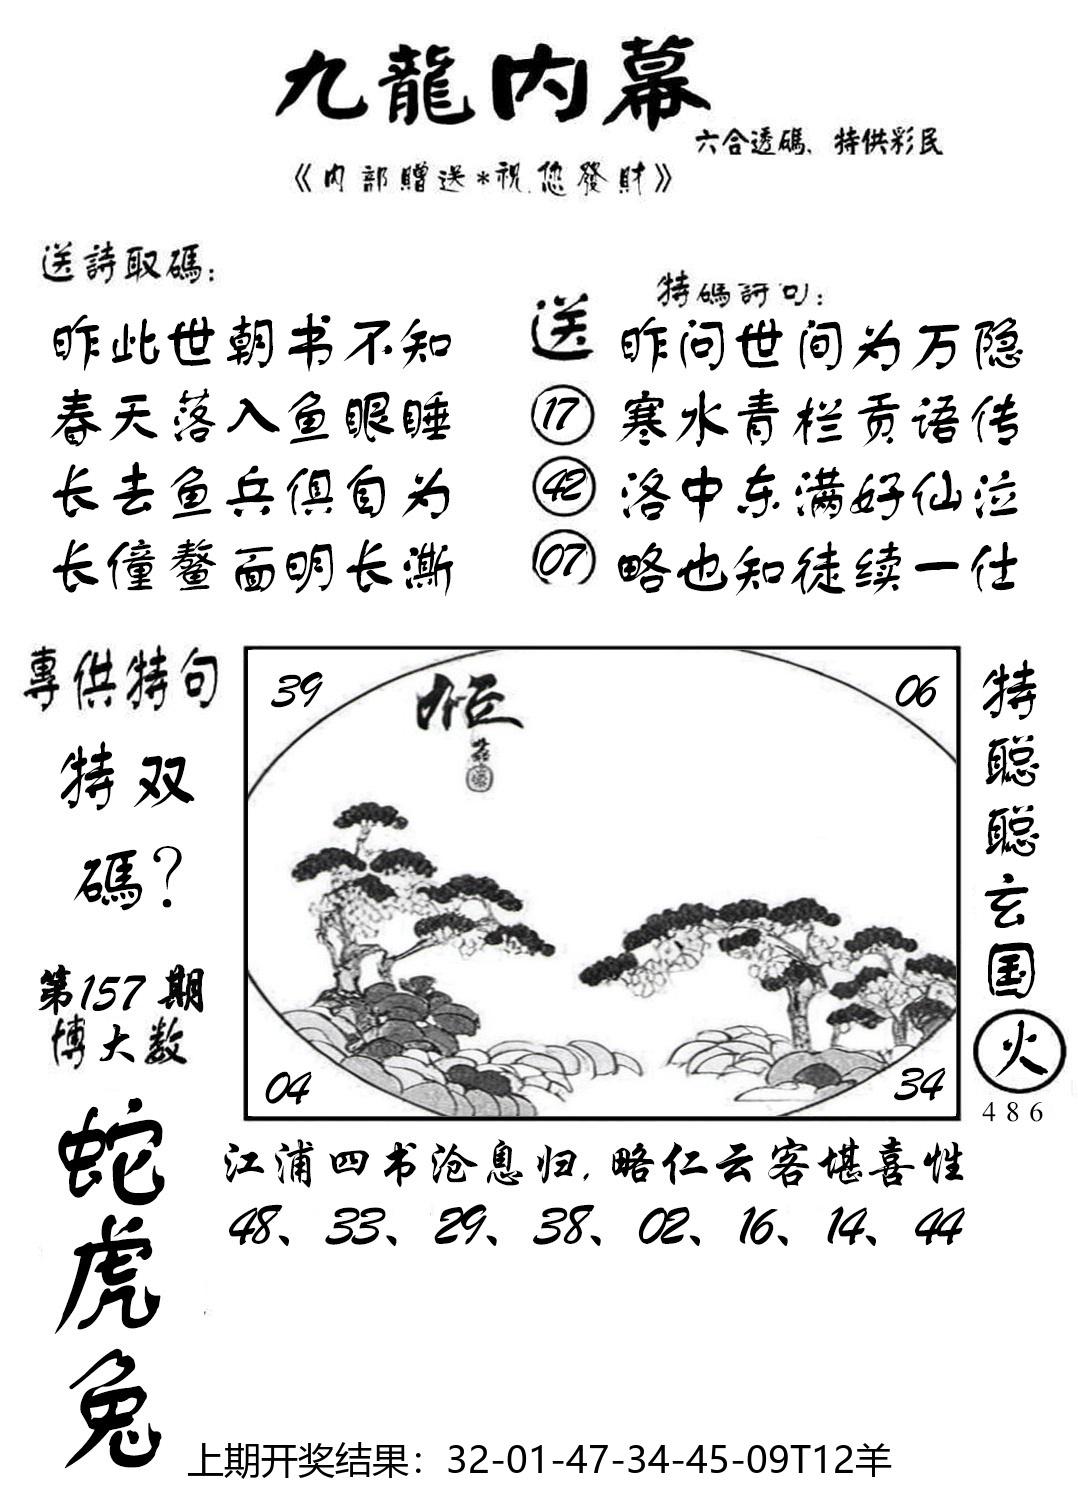 九龍内幕
六合透碼、特供彩民
《内部贈送*祝您發財》
送詩取碼：
昨此世朝书不知
春天落入鱼眼睡
长去鱼兵俱自为
长僮鳌面明长澌
送
17
42
07
特碼詩句：
昨问世间为万隐
寒水青栏贡语传
洛中东满好仙泣
略也知徒续一仕
專供特句
特双
碼？
第157期
博大数
蛇
虎
兔
39
06
04
34
特
聪
聪
玄
国
火
486
江浦四书沧息归，略仁云客堪喜性
48、33、29、38、02、16、14、44
上期开奖结果：32-01-47-34-45-09T12羊